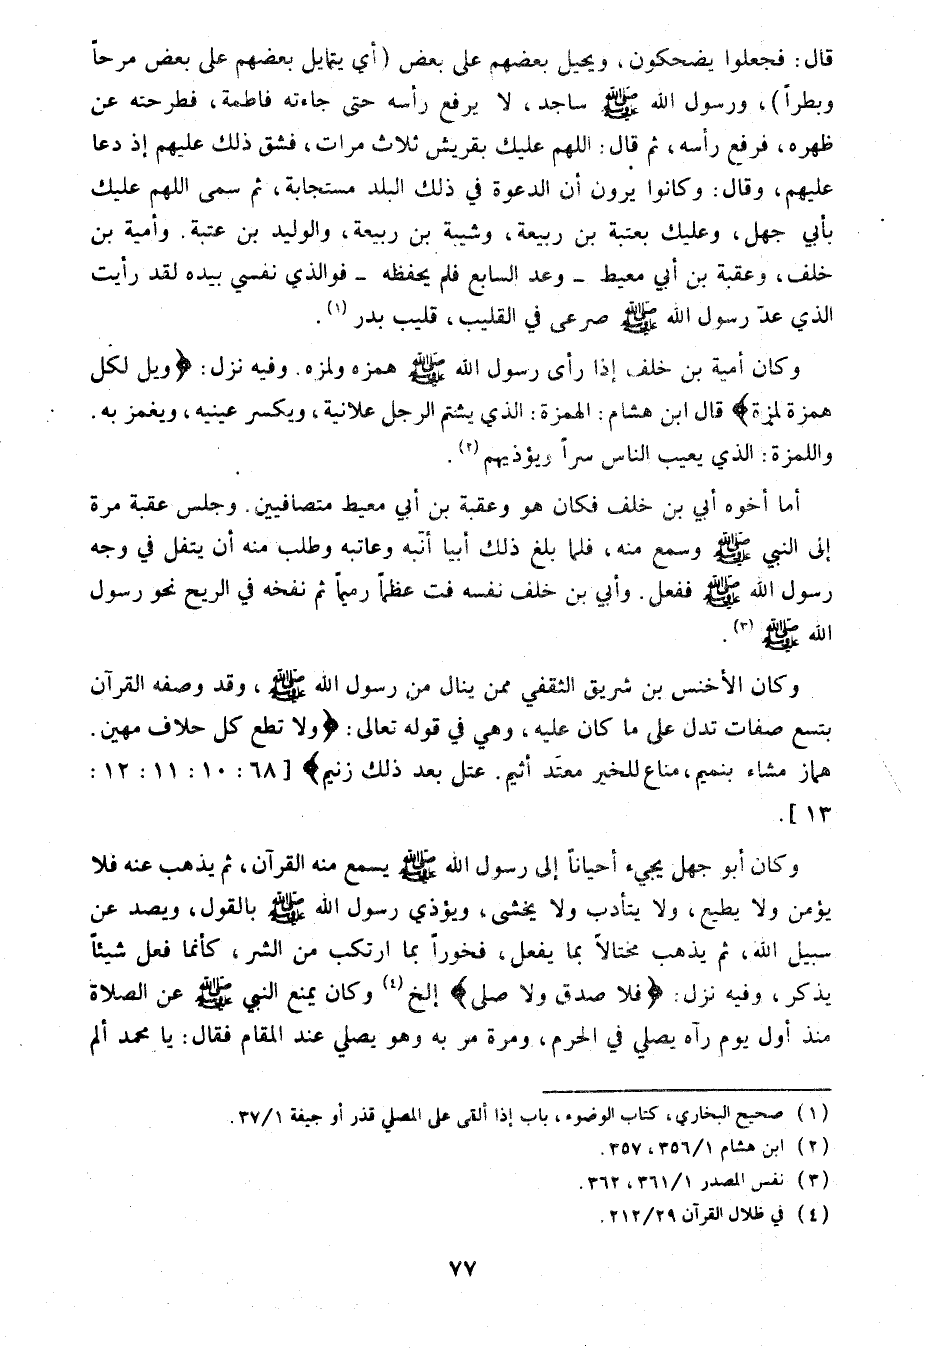 قال: فجعلوا يضحكون، ويحيل بعضهم على بعض (أي يتمايل بعضهم على بعض مرحاً
وبطراً)، ورسول الله ﷺ ساجد، لا يرفع رأسه حتى جاءته فاطمة، فطرحته عن
ظهره، فرفع رأسه، ثم قال: اللهم عليك بقريش ثلاث مرات، فشق ذلك عليهم إذ دعا
عليهم، وقال: وكانوا يرون أن الدعوة في ذلك البلد مستجابة، ثم سمى اللهم عليك
بأبي جهل، وعليك بعتبة بن ربيعة، وشيبة بن ربيعة، والوليد بن عتبة. وأمية بن
خلف، وعقبة بن أبي معيط ـ وعد السابع فلم يحفظه ـ فوالذي نفسي بيده لقد رأيت
الذي عدّ رسول الله ﷺ صرعى في القليب، قليب بدر (١).
وكان أمية بن خلف إذا رأى رسول الله ﷺ همزه ولمزه. وفيه نزل: ﴿ويل لكل
همزة لمزة﴾ قال ابن هشام: الهمزة: الذي يشتم الرجل علانية، ويكسر عينيه، ويغمز به.
واللمزة: الذي يعيب الناس سراً ويؤذيهم (٢).
أما أخوه أبي بن خلف فكان هو وعقبة بن أبي معيط متصافيين. وجلس عقبة مرة
إلى النبي ﷺ وسمع منه، فلما بلغ ذلك أبيا أنّبه وعاتبه وطلب منه أن يتفل في وجه
رسول الله ﷺ ففعل. وأبي بن خلف نفسه فت عظماً رميماً ثم نفخه في الريح نحو رسول
الله ﷺ (٣).
وكان الأخنس بن شريق الثقفي ممن ينال من رسول الله ﷺ، وقد وصفه القرآن
بتسع صفات تدل على ما كان عليه، وهي في قوله تعالى: ﴿ولا تطع كل حلاف مهين.
هماز مشاء بنميم، مناع للخير معتد أثيم. عتل بعد ذلك زنيم﴾ [٦٨: ١٠: ١١: ١٢:
١٣].
وكان أبو جهل يجيء أحياناً إلى رسول الله ﷺ يسمع منه القرآن، ثم يذهب عنه فلا
يؤمن ولا يطيع، ولا يتأدب ولا يخشى، ويؤذي رسول الله ﷺ بالقول، ويصد عن
سبيل الله، ثم يذهب مختالاً بما يفعل، فخوراً بما ارتكب من الشر، كأنما فعل شيئاً
يذكر، وفيه نزل: ﴿فلا صدق ولا صلى﴾ إلخ (٤) وكان يمنع النبي ﷺ عن الصلاة
منذ أول يوم رآه يصلي في الحرم، ومرة مر به وهو يصلي عند المقام فقال: يا محمد ألم
(١) صحيح البخاري، كتاب الوضوء، باب إذا ألقى على المصلي قذر أو جيفة ٣٧/١.
(٢) ابن هشام ٣٥٦/١، ٣٥٧.
(٣) نفس المصدر ٣٦١/١، ٣٦٢.
(٤) في ظلال القرآن ٢١٢/٢٩.
٧٧